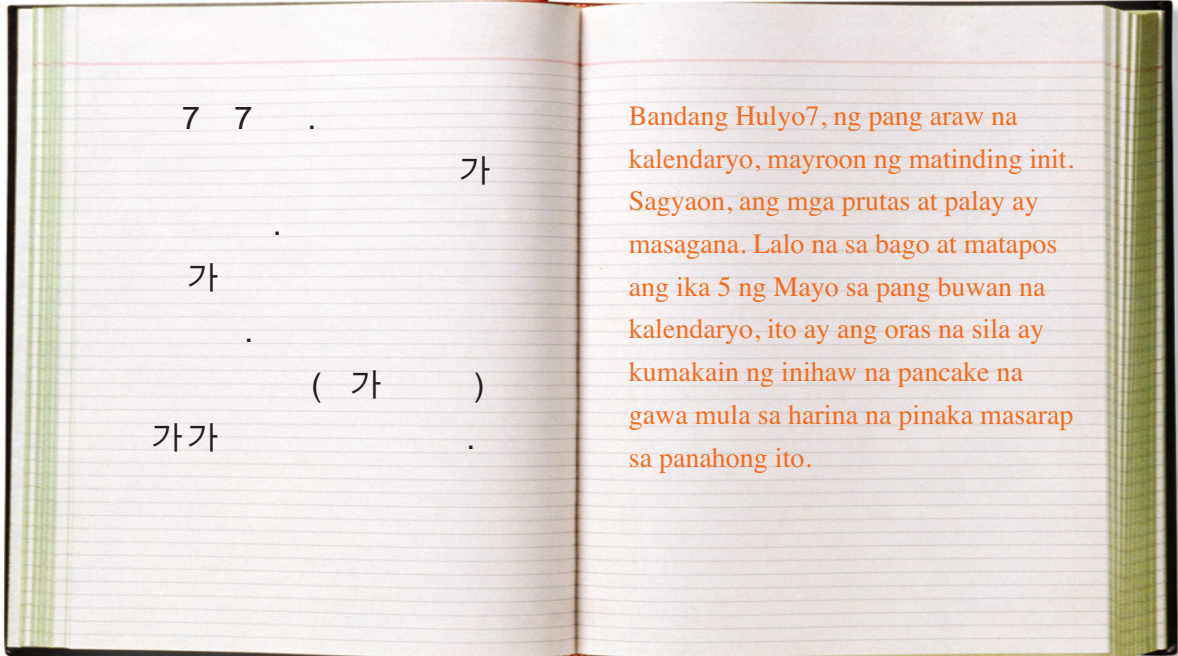 7 7 .
가
.
가
.
( 가 )
가가 .
Bandang Hulyo7, ng pang araw na
kalendaryo, mayroon ng matinding init.
Sagyaon, ang mga prutas at palay ay
masagana. Lalo na sa bago at matapos
ang ika 5 ng Mayo sa pang buwan na
kalendaryo, ito ay ang oras na sila ay
kumakain ng inihaw na pancake na
gawa mula sa harina na pinaka masarap
sa panahong ito.